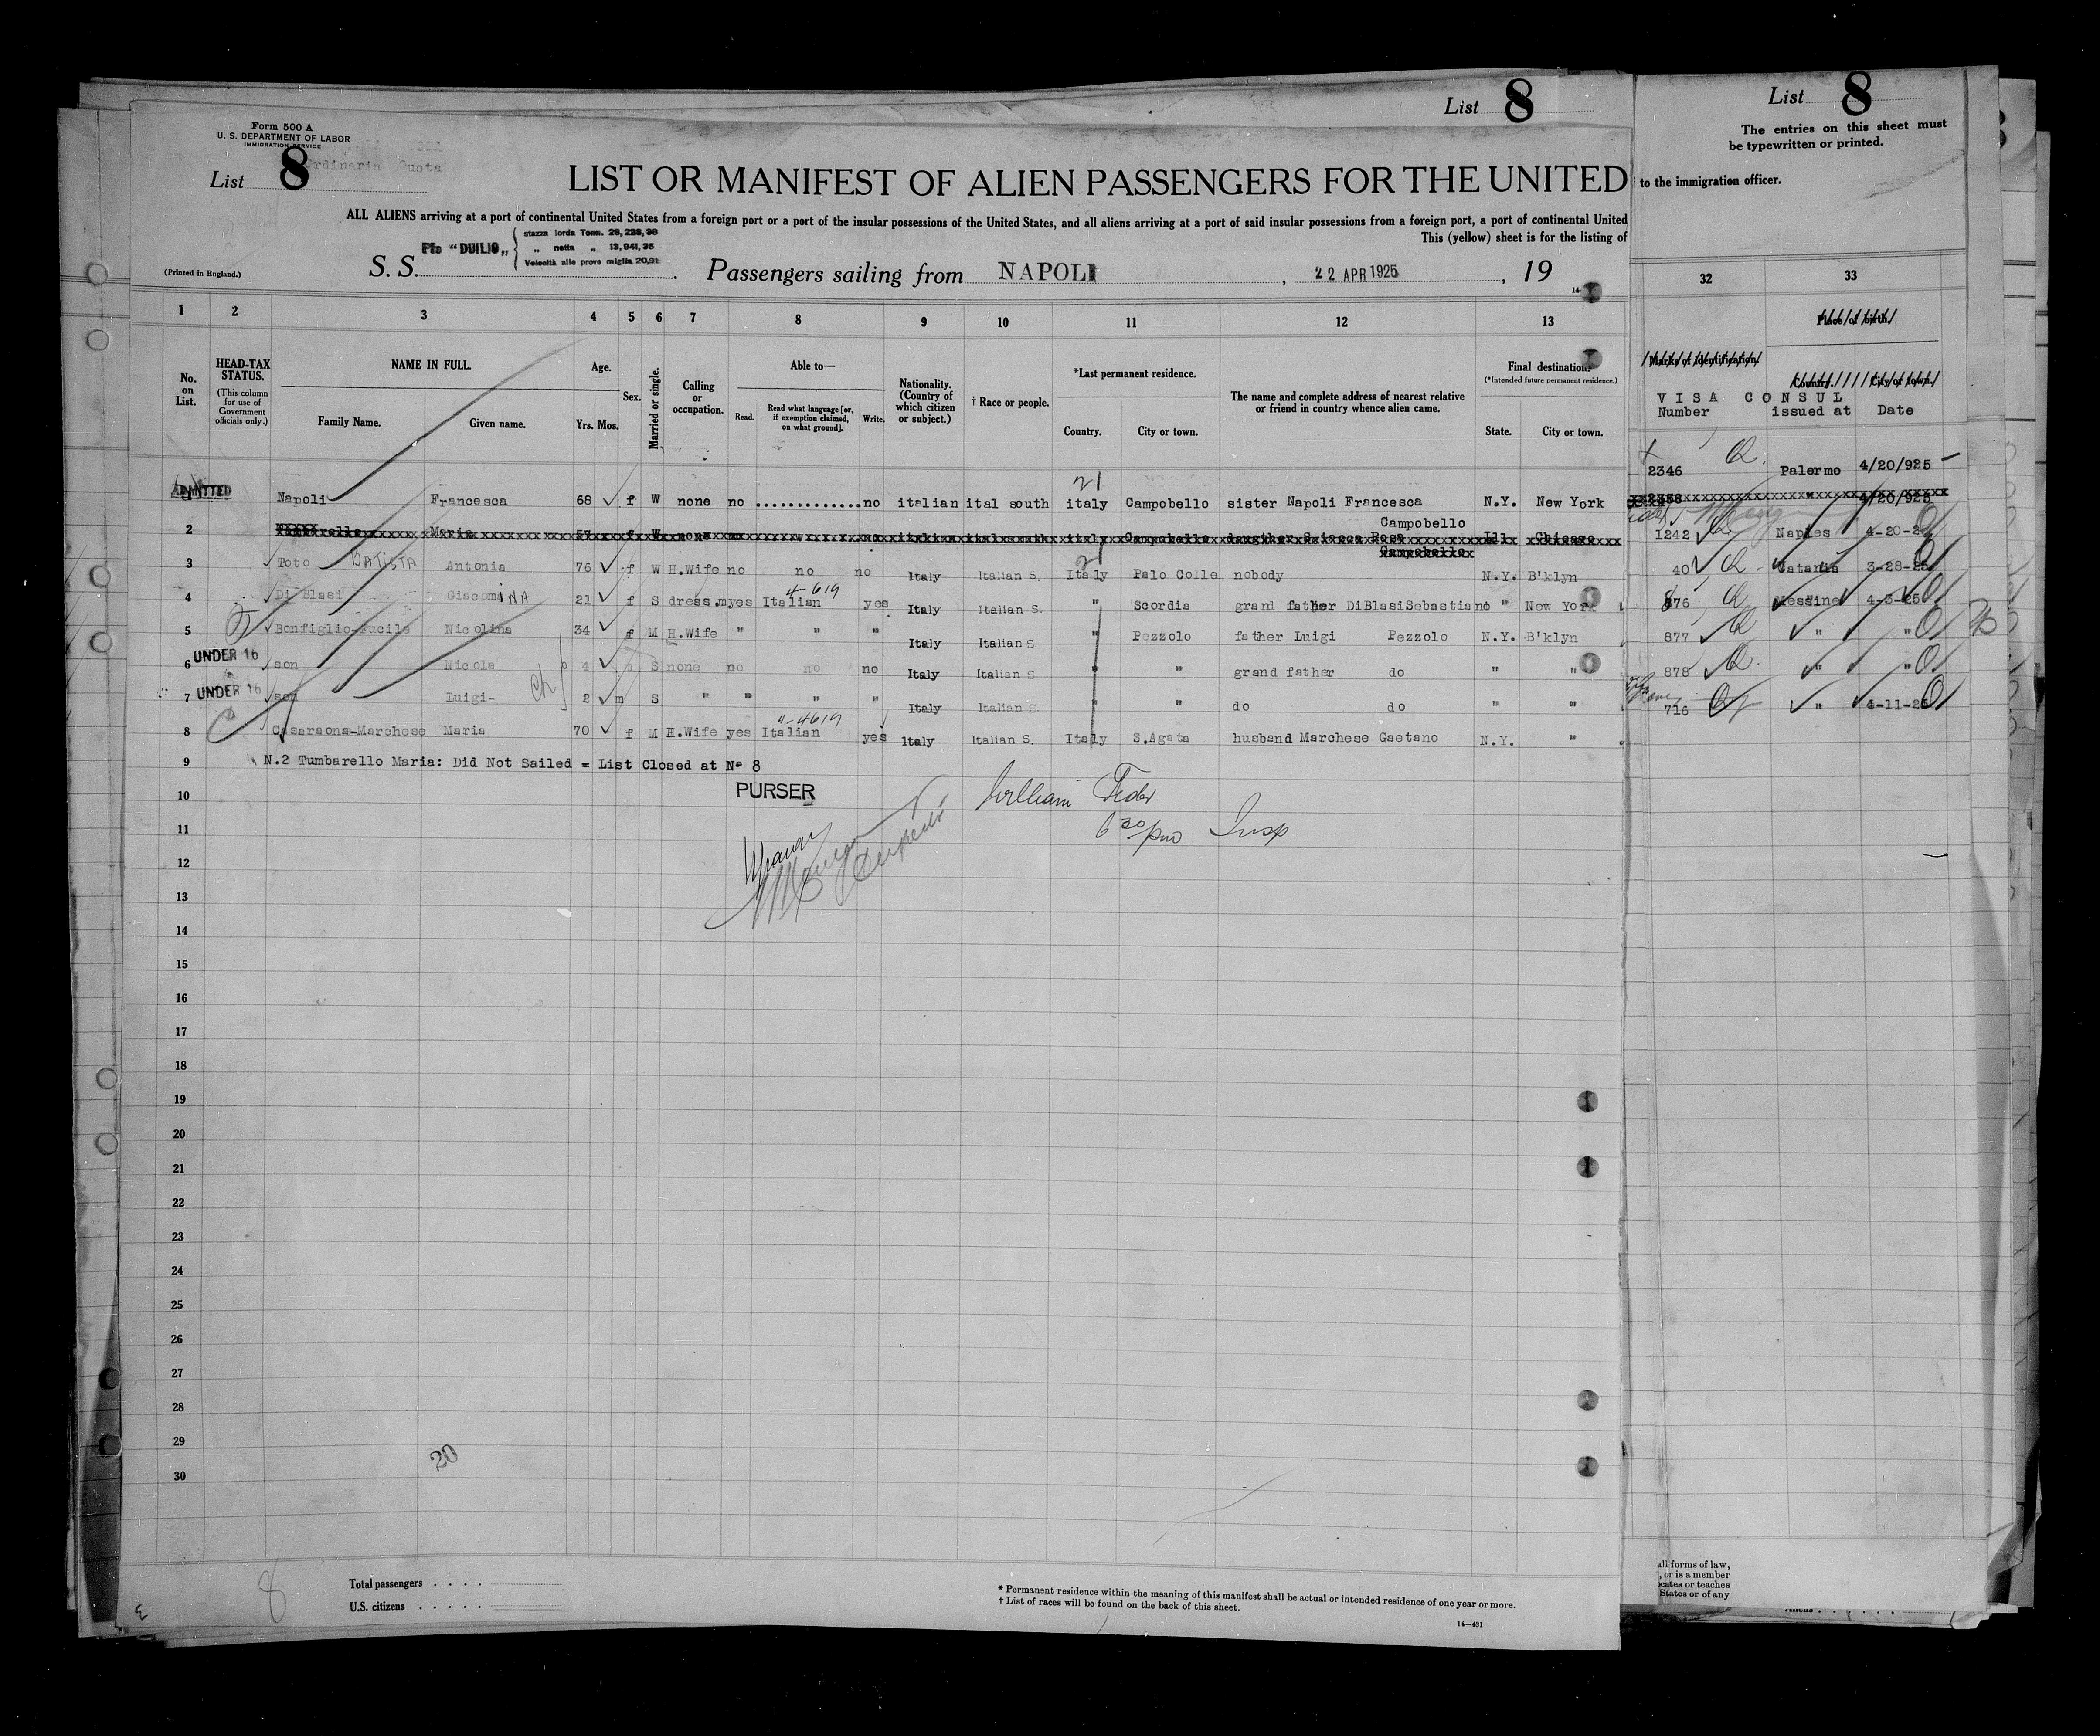 List 8
List 8
The entries on this sheet must
be typewritten or printed.
to the immigration officer.
Form 500 A
U. S. DEPARTMENT OF LABOR
IMMIGRATION SERVICE
Ordinaria Quota
List 8
LIST OR MANIFEST OF ALIEN PASSENGERS FOR THE UNITED
ALL ALIENS arriving at a port of continental United States from a foreign port or a port of the insular possessions of the United States, and all aliens arriving at a port of said insular possessions from a foreign port, a port of continental United
This (yellow) sheet is for the listing of
(Printed in England.)
S. S. Pfo "DUILIO„ stazza lorda Tonn.
„ netta „ 13,941,35
Velocità alle prove miglia 20,91
Passengers sailing from NAPOLI , 22 APR 1925 , 19
1 2 3 4 5 6 7 8 9 10 11 12 13 32 33
No. on List.
HEAD-TAX STATUS.
(This column for use of Government officials only.)
NAME IN FULL.
Family Name. Given name.
Age.
Yrs. Mos.
Sex.
Married or single.
Calling or occupation.
Able to—
Read. Read what language [or, if exemption claimed, on what ground]. Write.
Nationality. (Country of which citizen or subject.)
† Race or people.
*Last permanent residence.
Country. City or town.
The name and complete address of nearest relative or friend in country whence alien came.
Final destination.
(*Intended future permanent residence.)
State. City or town.
Marks of identification.
Place of birth.
Country. City or town.
VISA CONSUL
Number issued at Date
ADMITTED Napoli Francesca 68 f W none no .............no italian ital south italy Campobello sister Napoli Francesca N.Y. New York 2346 Palermo 4/20/925
21
Campobello
2 Maria 57 f W none no no italian ital south italy Campobello Rosa Ill Chicago 2358 " 4/20/925
Campobello
21
3 Toto BATISTA Antonia 76 f W H.Wife no no no Italy Italian S. Italy Palo Colle nobody N.Y. B'klyn 1242 Naples 4-20-2
4-619
4 Di Blasi GiacomINA 21 f S dress.m yes Italian yes Italy Italian S. " Scordia grand father DiBlasiSebastiano " New York 40 Catania 3-28-25
5 Bonfiglio-Fucile Nicolina 34 f M H.Wife " " " Italy Italian S " Pezzolo father Luigi Pezzolo N.Y. B'klyn 876 Messine 4-3-25
UNDER 16
6 son Nicola 4 S none no no no Italy Italian S " " grand father do " " 877 " "
UNDER 16
7 son Luigi- 2 m S " " " " Italy Italian S. " " do do " " 878 " "
4-4619
8 Casaraona-Marchese Maria 70 f M H.Wife yes Italian yes Italy Italian S. Italy S.Agata husband Marchese Gaetano N.Y. " 716 " 4-11-25
9 N.2 Tumbarello Maria: Did Not Sailed = List Closed at Nº 8
10 PURSER William
11 6 30/pm Insp
12
13
14
15
16
17
18
19
20
21
22
23
24
25
26
27
28
29
20
30
8
Total passengers . . . .
U.S. citizens . . . . .
* Permanent residence within the meaning of this manifest shall be actual or intended residence of one year or more.
† List of races will be found on the back of this sheet.
14—431
all forms of law,
, or is a member
ocates or teaches
States or of any